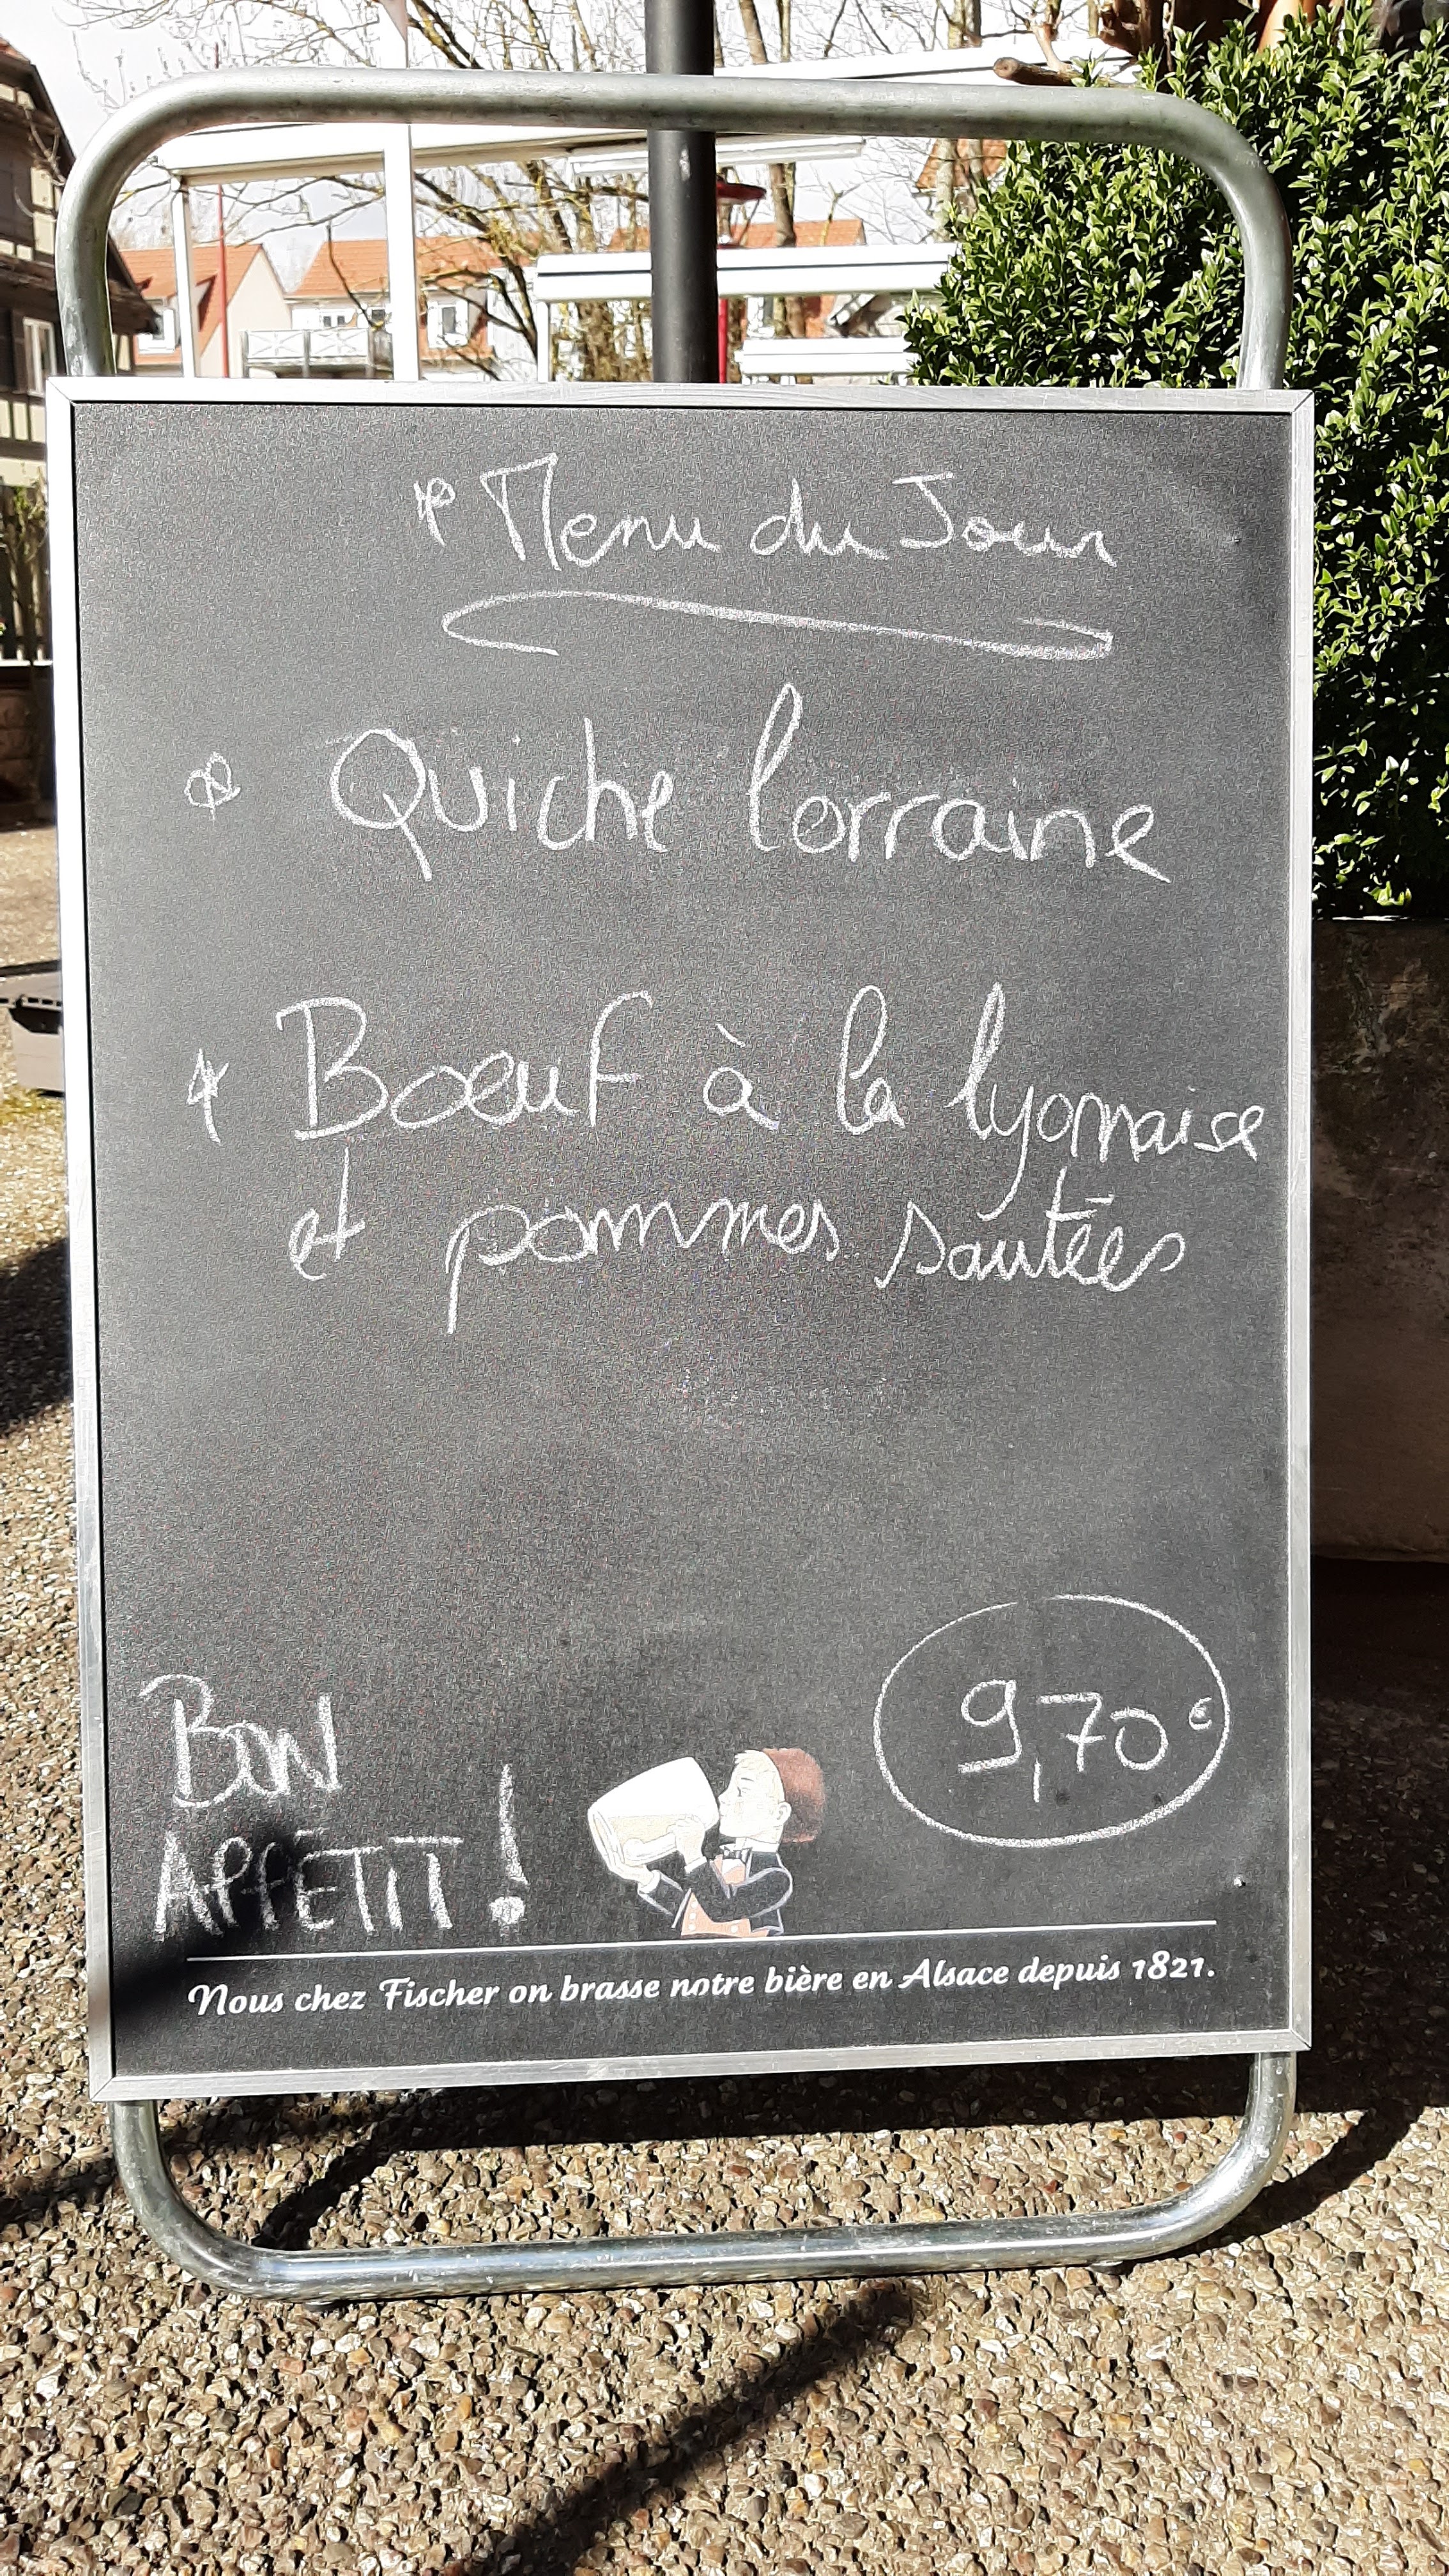 * Menu du Jour
* Quiche lorraine
* Boeuf à la lyonnaise
et pommes sautées
9,70 €
BON
APPÉTIT !
Nous chez Fischer on brasse notre bière en Alsace depuis 1821.